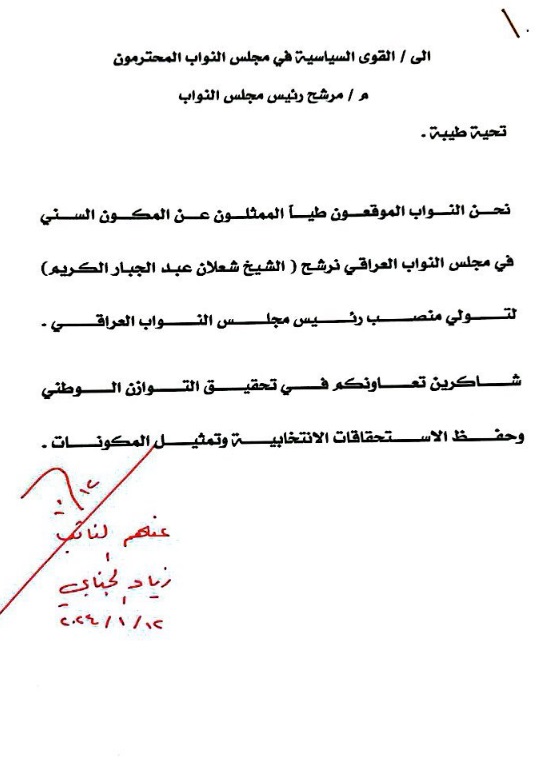 الى / القوى السياسية في مجلس النواب المحترمون
م / مرشح رئيس مجلس النواب
تحية طيبة .
نحن النواب الموقعون طياً الممثلون عن المكون السني
في مجلس النواب العراقي نرشح ( الشيخ شعلان عبد الجبار الكريم)
لتولي منصب رئيس مجلس النواب العراقي .
شاكرين تعاونكم في تحقيق التوازن الوطني
وحفظ الاستحقاقات الانتخابية وتمثيل المكونات .
عنهم النائب
زياد الجنابي
٢٠٢٤/١/١٢